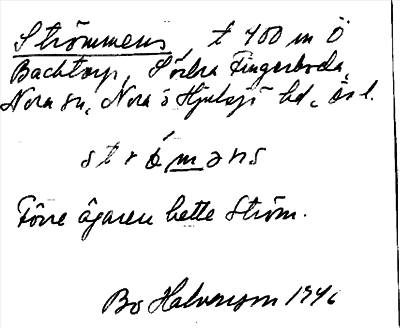 Strömmens, t 400 m Ö
Backtorp, Södra Fingerboda,
Nora sn, Nora o Hjulsjö bd, Ös l.
strömə̣ns
Förre ägaren hette Ström.
Bo Halvarson 1946